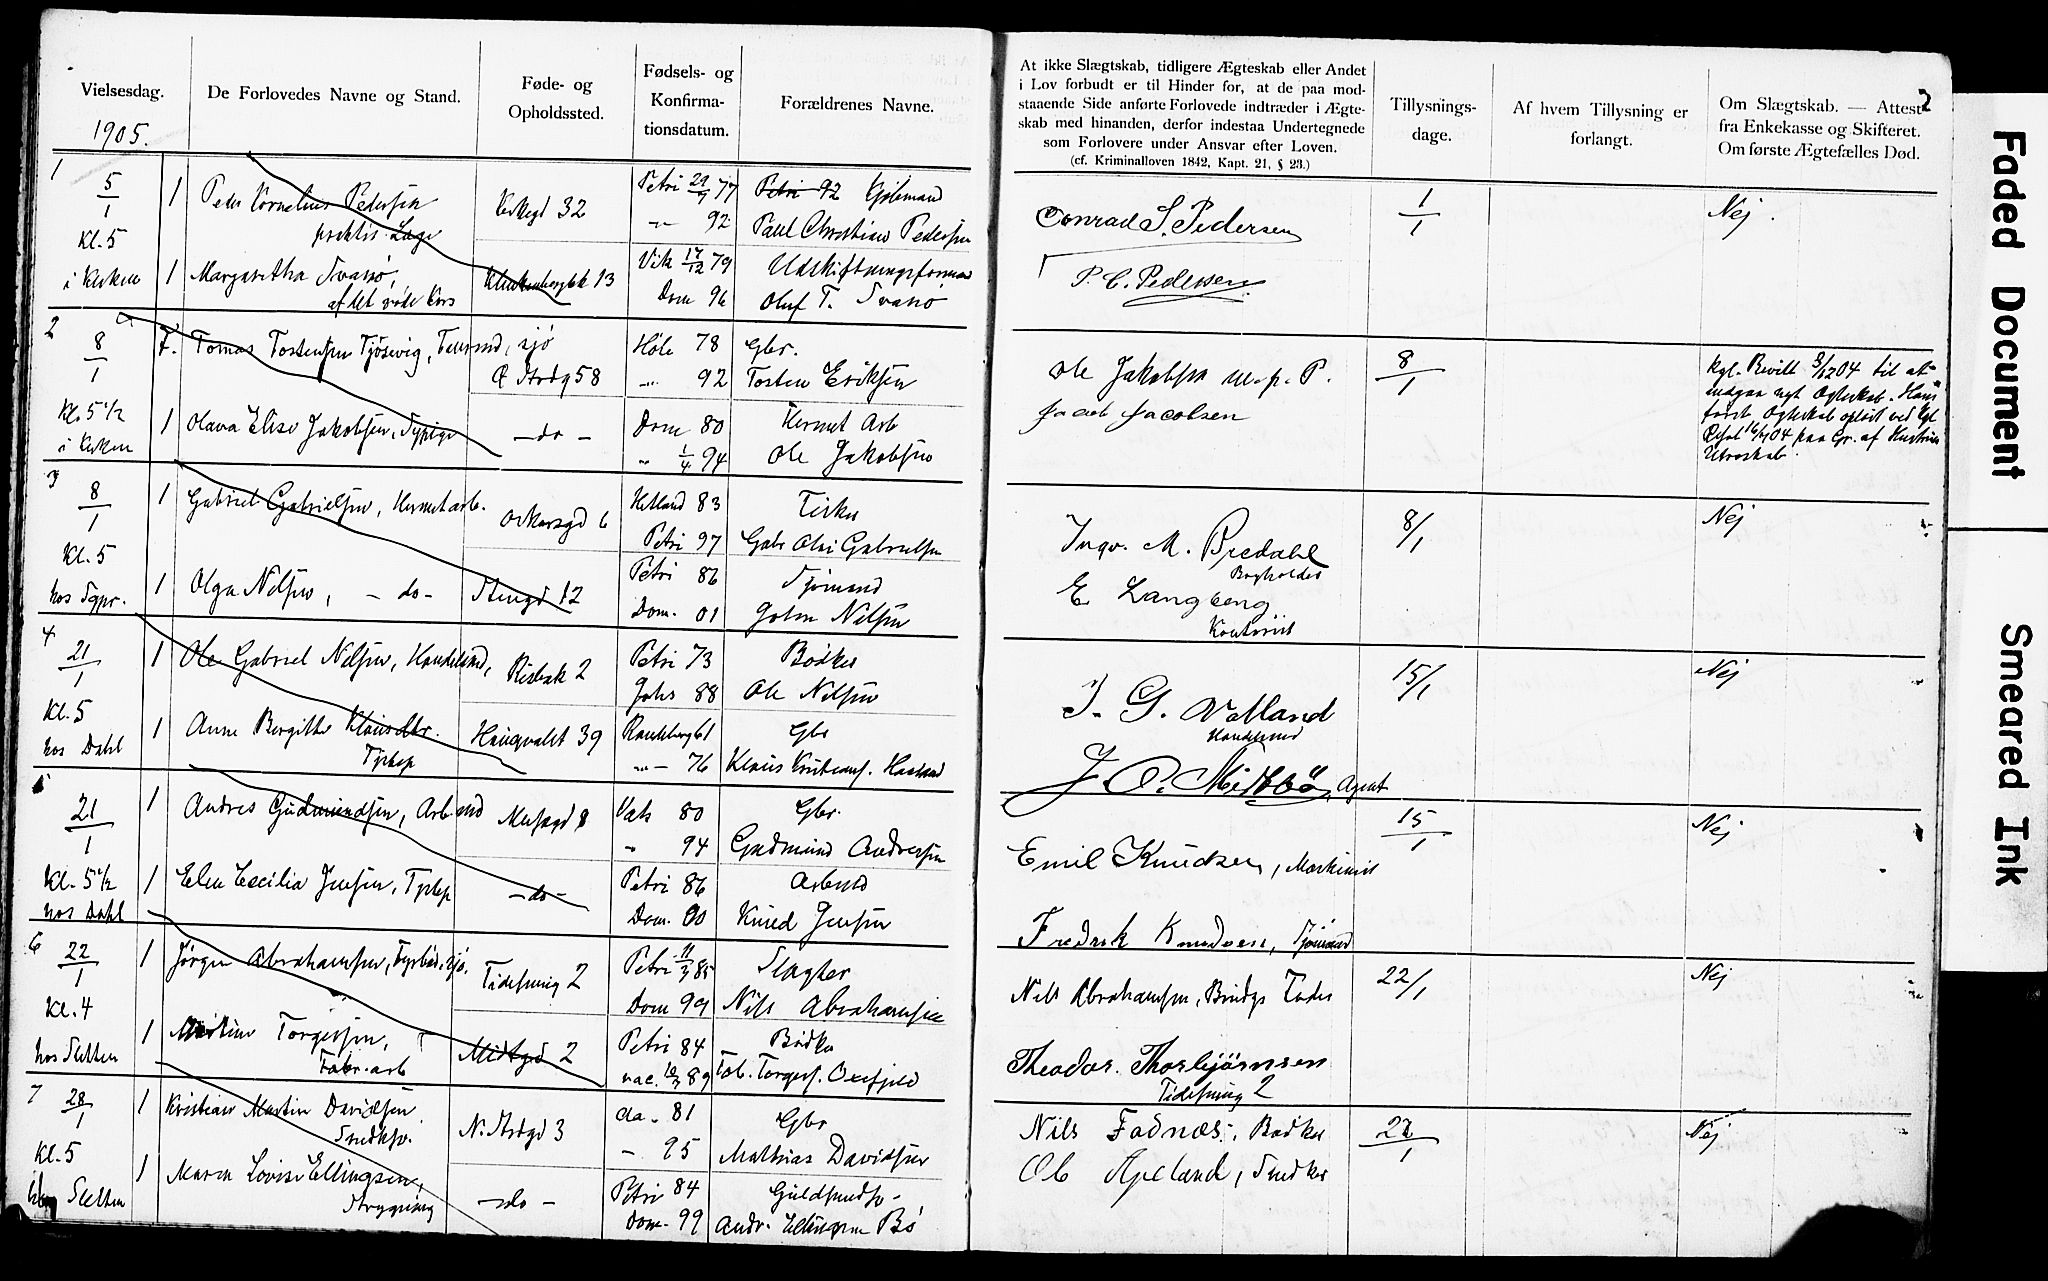 Vielsesdag.
1905.
De Forlovedes Navne og Stand.
Føde- og
Opholdssted.
Fødsels- og
Konfirma-
tionsdatum.
Forældrenes Navne.
At ikke Slægtskab, tidligere Ægteskab eller Andet
i Lov forbudt er til Hinder for, at de paa mod-
staaende Side anførte Forlovede indtræder i Ægte-
skab med hinanden, derfor indestaa Undertegnede
som Forlovere under Ansvar efter Loven.
(cf. Kriminalloven 1842, Kapt. 21, § 23.)
Tillysnings-
dage.
Af hvem Tillysning er
forlangt.
Om Slægtskab. — Attest
fra Enkekasse og Skifteret.
Om første Ægtefælles Død.
2
1
5/1
Kl. 5
i Kirken
1 Peder Kornelius Pedersen
praktis. Læge
Kirkegd 32
Petri 29/9 77
-"- 92
Petri 92 Kjøbmand
Paul Christian Pedersen
1 Margaretha Svanø,
af det røde Kors
Klinkenbergbk 13
Vik 17/12 79
Dom 96
Udskiftningsformand
Oluf T. Svanø
Conrad S. Pedersen
P. C. Pedersen
1/1
Nej.
2
8/1
Kl. 5 1/2
i Kirken
F. Tomas Tostensen Tjøsevig, Tømmermd, sjø
Ø Strdg 58
Høle 78
-"- 92
Gbr.
Tosten Eriksen
1 Olava Elise Jakobsen, Sypige
- do -
Dom 80
" 1/4 94
Hermet Arb
Ole Jakobsen
Ole Jakobsen m. p. P.
Jacob Jacobsen
8/1
Kgl. Bevill 3/12 04 til at
indgaa nyt Ægteskab. Hans
først Ægteskab opløst ved Kgl
Resol 16/4 04 paa Gr. af Hustrus
Utroskab.
3
8/1
Kl. 5
hos Sgpr.
1 Gabriel Gabrielsen, Hermetarb.
Oskarsgd 6
Hetland 83
Petri 97
Fisker
Gabr Olai Gabrielsen
1 Olga Nilsen, - do -
Stengd 12
Petri 86
Dom. 01
Sjømand
John Nilsen
Ingv. M. Bredahl
Bogholder
E. Langberg
Kontorist
8/1
Nej
4
21/1
Kl. 5
hos Dahl
1 Ole Gabriel Nilsen, Handelsmd,
Risbak 2
Petri 73
Johs 88
Bødker
Ole Nilsen
1 Anne Bergitte Klausdtr.
Tjpige
Haugvaldst 39
Randeberg 61
-"- 76
Gbr
Klaus Kristians. Harland
J. G. Valland
Handelsmd
J. O. Midbøe, Agent
15/1
Nej
5
21/1
Kl. 5 1/2
hos Dahl
1 Andres Gudmundsen, Arbmd
Musegd 8
Vats 80
" 94
Gbr.
Gudmund Andressen
1 Elen Cecilia Jensen, Tjpige
- do -
Petri 86
Dom. 00
Arbmd
Knud Jensen
Emil Knudsen, Maskinist
Fredrik Knudsen, Sjømand
15/1
Nej
6
22/1
Kl. 4
hos Sletten
1 Jørgen Abrahamsen, Fyrbøder, sjø.
Tidemsng 2
Petri 11/3 85
Dom 99
Slagter
Nils Abrahamsen
1 Martine Torgersen,
Fabr. arb
Midtgd 2
Petri 84
vac. 10/3 89
Bødker
Tob. Torgers. Oxefjeld
Nils Abrahamsen, Brudgs Fader
Theodor. Thorbjørnsen
Tidemsng 2
22/1
Nej
7
28/1
Kl. 5
hos Sletten
1 Kristian Martin Davidsen
Snedksv.
N. Strdgd 3
do. 81
- 95
Gbr
Mathias Davidsen
1 Maren Lovise Ellingsen,
Strygning
- do -
Petri 84
Dom. 99
Guldsmedsv-
Andr. Ellingsen Bø
Nils Fadnæs, Bødker
Ole Apeland, Snedker
22/1
Nej
Faded Document
Smeared Ink